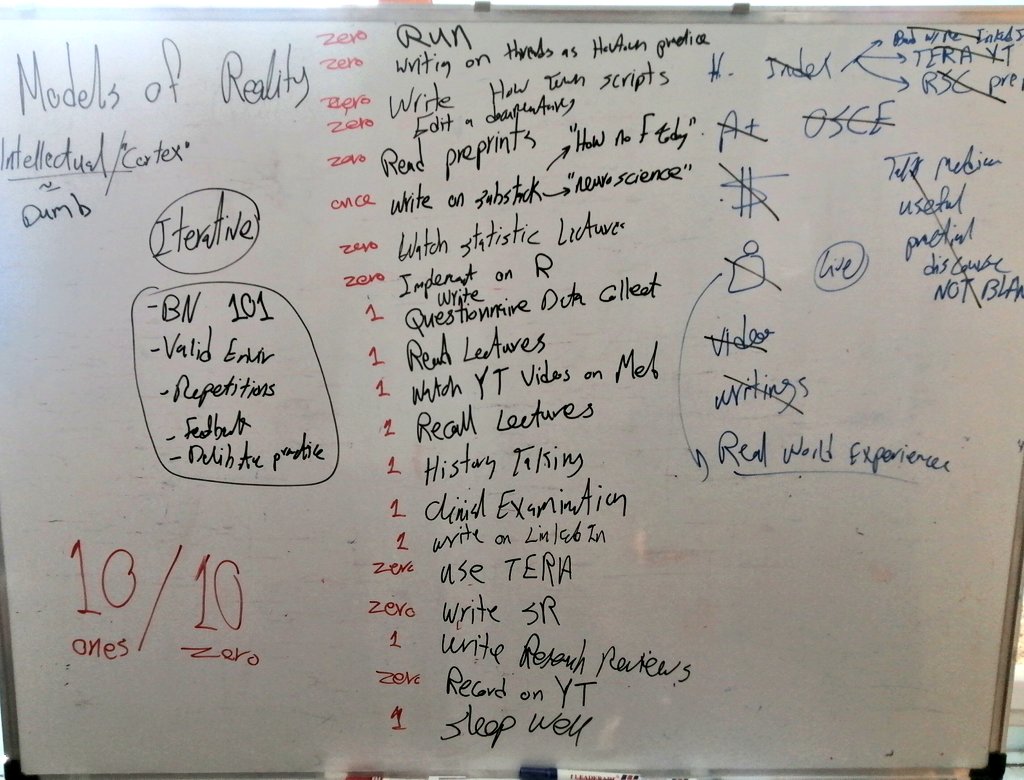 Models of Reality
Intellectual/"Cortex"
~
Dumb
Iterative
- BN 101
- Valid Envir
- Repetitions
- Feedback
- Delibrate practice
10/10
ones zero
zero Run
zero Writing on threads as practice
zero Write How Town scripts
zero Edit a documentary
zero Read preprints
once write on substack → "How no F tdy" → "neuroscience"
zero Watch statistic Lectures
zero Implement on R
1 write Questionnaire Data Collect
1 Read Lectures
1 Watch YT Videos on Med
1 Recall Lectures
1 History Taking
1 Clinical Examination
1 write on LinkedIn
zero use TERA
zero write SR
1 write Research Reviews
zero Record on YT
1 Sleep Well
H. Index
write LinkedI
TERA YT
RSC pre
A+ OSCE
$
Live
Videos
writings
Real World Experiences
Talk medicine
useful
practical
discourse
NOT BLAN
LEADERART